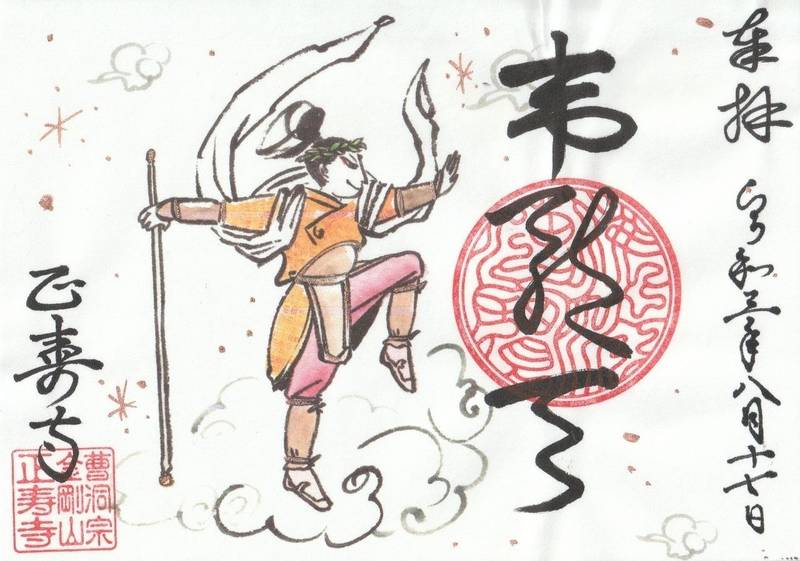 奉拝 令和三年八月十七日
韋駄天
正寿寺
曹洞宗
金剛山
正寿寺